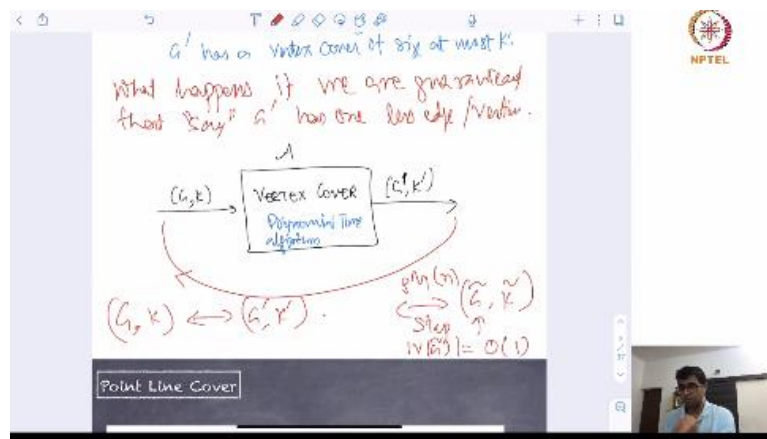 G' has a vertex cover of size at most k'.
NPTEL
What happens if we are guaranteed
that "say" G' has one less edge/vertex.
A
(G,k)
VERTEX COVER
(G',k')
Polynomial Time
algorithm
poly(n)
(G,k) ↔ (G',k').
↔ (G̃, k̃)
Step ↑
|V(G̃)| = O(1)
Point Line Cover